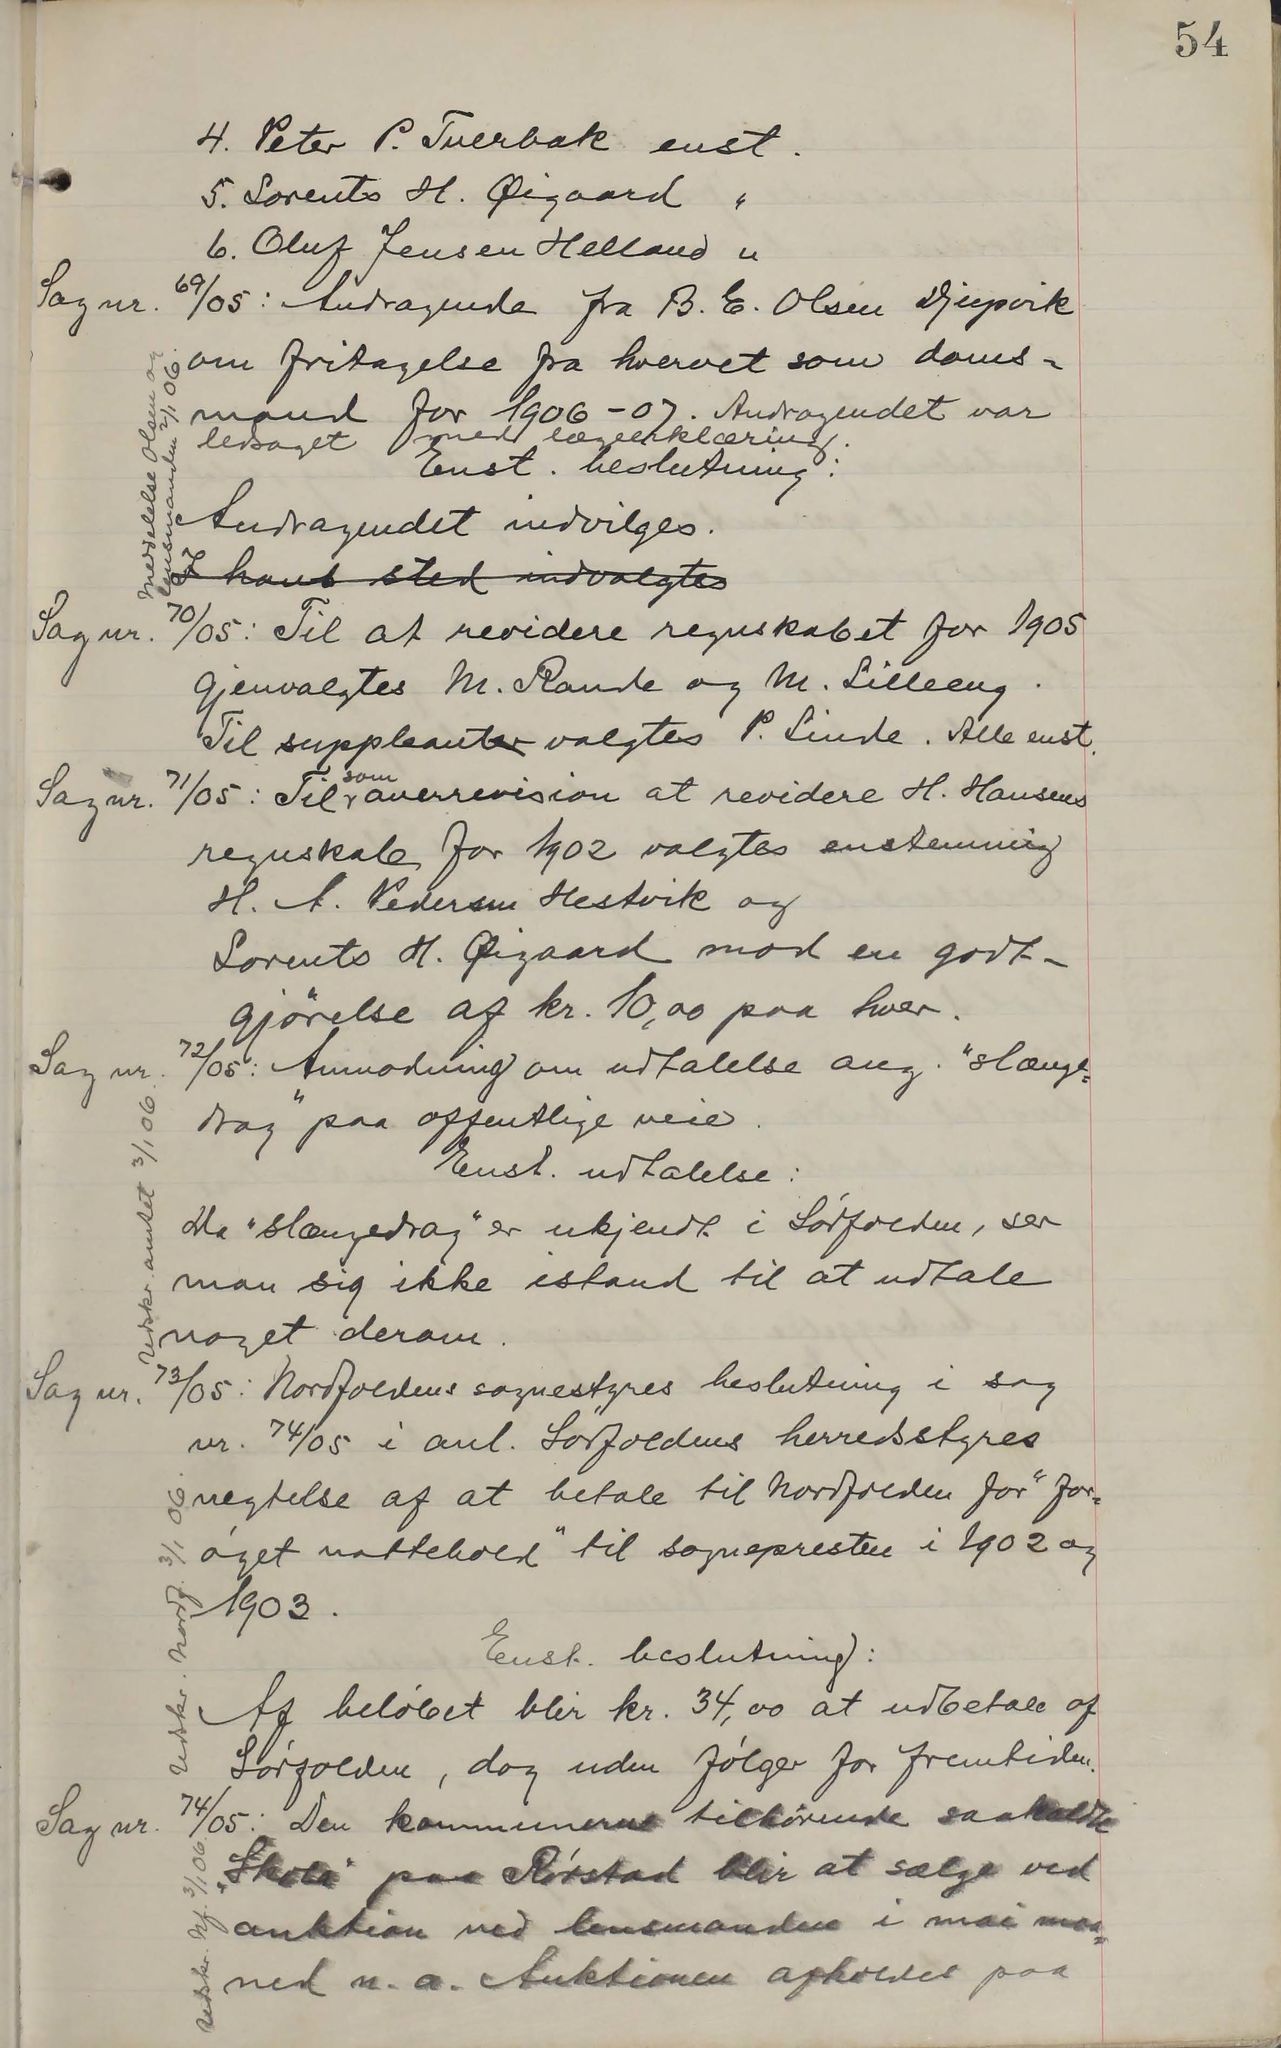 54
4. Peter P. Tverbak enst.
5. Lorents H. Øigaard "
6. Oluf Jensen Helland "
Sag nr. 69/05: Andragende fra B. E. Olsen Djupvik
om fritagelse fra hvervet som doms-
mand for 1906-07. Andragendet var
ledsaget med lægeerklæring.
Enst. beslutning:
Andragendet indvilges.
I hans sted indvalgtes
Meddelelse Olsen og
lensmanden 2/1 06.
Sag nr. 70/05: Til at revidere regnskabet for 1905
gjenvalgtes M. Rande og M. Lilleeng.
Til suppleanter valgtes P. Linde. Alle enst.
Sag nr. 71/05: Til som overrevision at revidere H. Hansens
regnskab for 1902 valgtes enstemmig
H. A. Pedersen Hestvik og
Lorents H. Øigaard mod en godt-
gjörelse af kr. 10,00 paa hver.
Sag nr. 72/05: Anmodning om udtalelse ang. "slænge-
drag" paa offentlige veie.
Enst. udtalelse:
Da "slængedrag" er ukjendt i Sörfolden, ser
man sig ikke istand til at udtale
noget derom.
Udskr. amtet 3/1 06.
Sag nr. 73/05: Nordfoldens sognestyres beslutning i sag
nr. 74/05 i anl. Sörfoldens herredsstyres
negtelse af at betale til Nordfolden for "for-
öget nattehold" til sognepresten i 1902 og
1903.
Enst. beslutning:
Af belöbet blir kr. 34,00 at udbetale af
Sörfolden, dog uden fölger for fremtiden.
Udskr. Nordf. 3/1 06.
Sag nr. 74/05: Den kommunerne tilhörende saakaldte
"Skola" paa Rörstad blir at sælge ved
auktion ved lensmanden i mai maa-
ned n. a. Auktionen afholdes paa
Udskr. Nf. 3/1 06.